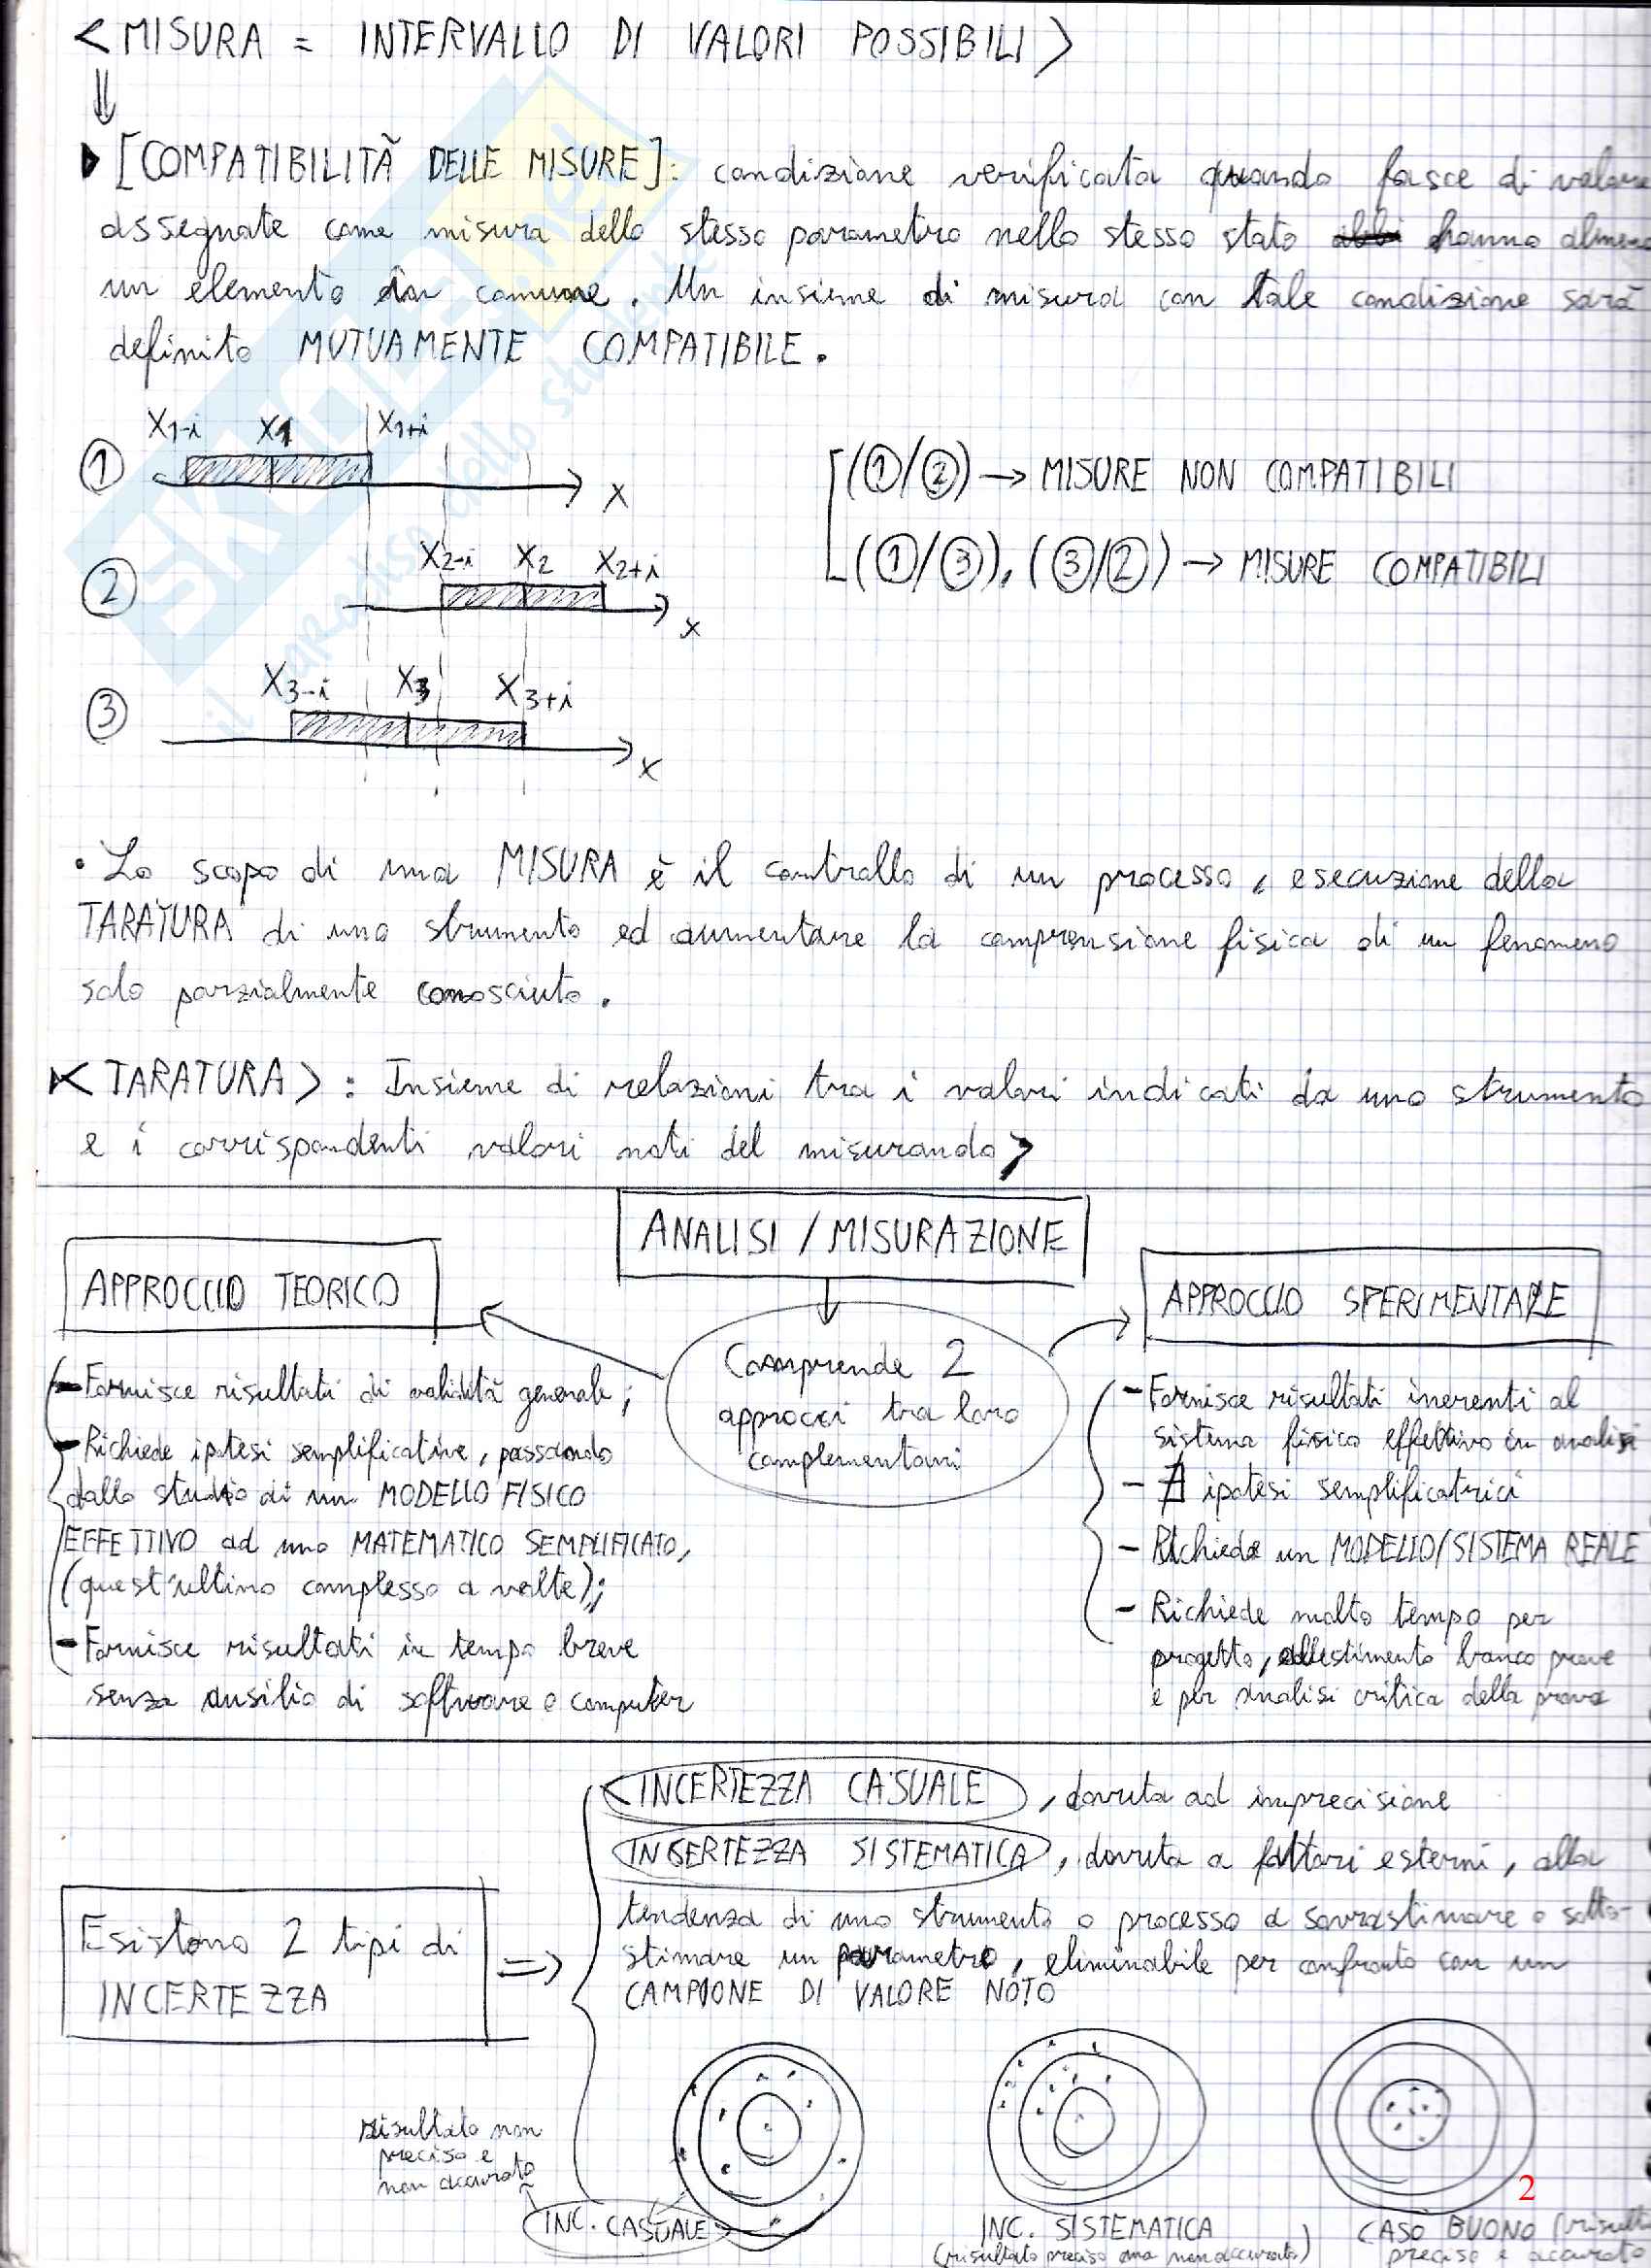 < MISURA = INTERVALLO DI VALORI POSSIBILI >
[COMPATIBILITÀ DELLE MISURE]: condizione verificata quando fasce di valore
assegnate come misura dello stesso parametro nello stesso stato hanno almeno
un elemento in comune. Un insieme di misura con tale condizione sarà
definito MUTUAMENTE COMPATIBILE.
X1-i X1 X1+i
① X
(①/②) → MISURE NON COMPATIBILI
X2-i X2 X2+i
② X
(①/③), (③/②) → MISURE COMPATIBILI
X3-i X3 X3+i
③ X
• Lo scopo di una MISURA è il controllo di un processo, esecuzione della
TARATURA di uno strumento ed aumentare la comprensione fisica di un fenomeno
solo parzialmente conosciuto.
< TARATURA > : Insieme di relazioni tra i valori indicati da uno strumento
e i corrispondenti valori noti del misurando >
ANALISI / MISURAZIONE
APPROCCIO TEORICO
APPROCCIO SPERIMENTALE
Comprende 2
approcci tra loro
complementari
- Fornisce risultati di validità generale;
- Richiede ipotesi semplificative, passando
dallo studio di un MODELLO FISICO
EFFETTIVO ad uno MATEMATICO SEMPLIFICATO,
(quest'ultimo complesso a volte);
- Fornisce risultati in tempo breve
senza ausilio di software o computer
- Fornisce risultati inerenti al
sistema fisico effettivo in analisi
- ∄ ipotesi semplificatrici
- Richiede un MODELLO/SISTEMA REALE
- Richiede molto tempo per
progetto, allestimento banco prove
e per analisi critica della prova
Esistono 2 tipi di
INCERTEZZA
=> INCERTEZZA CASUALE, dovuta ad imprecisione
INCERTEZZA SISTEMATICA, dovuta a fattori esterni, alla
tendenza di uno strumento o processo a sovrastimare o sotto-
stimare un parametro, eliminabile per confronto con un
CAMPIONE DI VALORE NOTO
risultato non
preciso e
non accurato
INC. CASUALE
INC. SISTEMATICA
(risultato preciso ma non accurato)
CASO BUONO (risult
preciso e accurato
2
SKUOLA.net
il paradiso dello studente